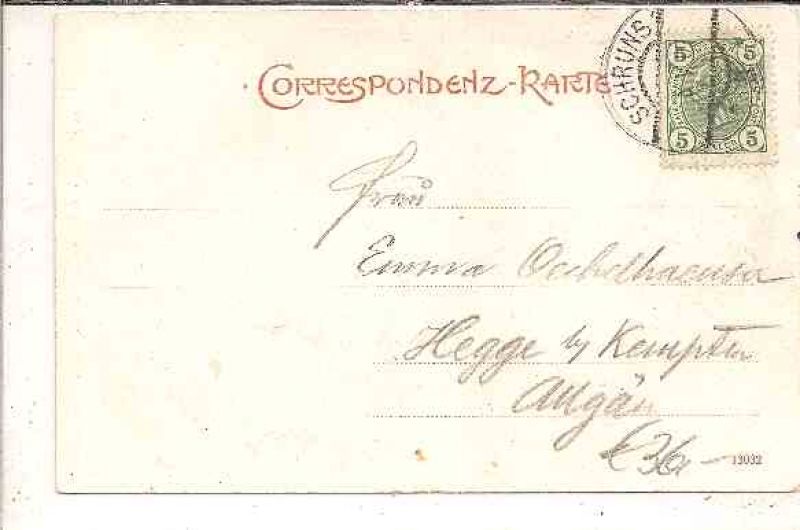 CORRESPONDENZ-KARTE
SCHRUNS
5 5
5 5
Frau
Emma Oechelhaeuser
Hegge by Kempten
Allgäu
€36,–
13032